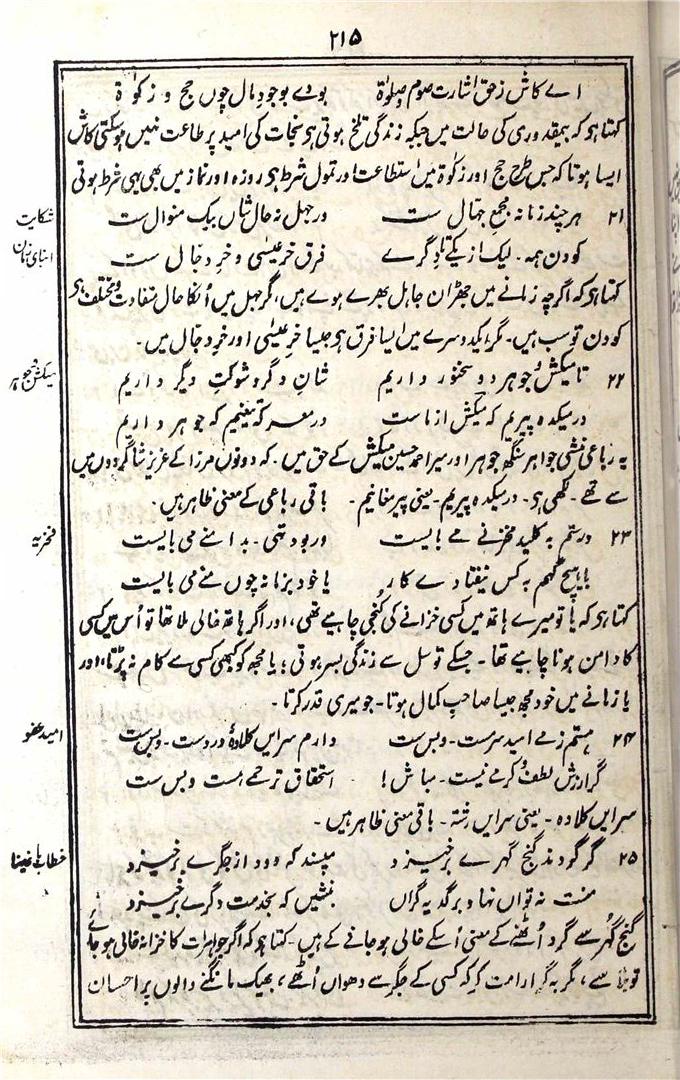 ۲۱۵
اے کاش زحق اشارت صوم و صلوٰۃ بودے بوجود مال چوں حج و زکوٰۃ
کہتا ہو کہ بیمقدوری کی حالت میں جبکہ زندگی تلخ ہوتی ہو نجات کی امید پر طاعت نہیں ہو سکتی کاش
ایسا ہوتا کہ جس طرح حج اور زکوٰۃ میں استطاعت اور تمول شرط ہو روزہ اور نماز میں بھی یہی شرط ہوتی
شکایت ابنای زمان
۲۱ ہر چند زمانہ مجمع جہال ست در جہل نہ حال شاں بیک منوال ست
کودن ہمہ۔ لیک از یکے تا دگرے فرق خر عیسیٰ و خر دجال ست
کہتا ہو کہ اگرچہ زمانے میں جاہل بھرے ہوے ہیں، مگر جہل میں اُنکا حال متفاوت و مختلف ہو
کودن تو سب ہیں۔ مگر ایک دوسرے میں ایسا فرق ہو جیسا خر عیسیٰ اور خر دجال میں۔
میکش و جوہر
۲۲ تا میکش و جوہر دو سخنور داریم شان دگر و شوکت دیگر داریم
در میکدہ پیریم کہ میکش از ماست در معرکہ تیغیم کہ جوہر داریم
یہ رباعی منشی جواہر سنگھ جوہر اور میر احمد حسین میکش کے حق میں۔ کہ دونوں مرزا کے عزیز شاگردوں میں
سے تھے۔ لکھی ہو۔ در میکدہ پیریم۔ یعنی پیر مغانیم۔ باقی رباعی کے معنی ظاہر ہیں۔
فخریہ
۲۳ دستم بہ کلید مخزنے می بایست ور بود تہی۔ بدامنے می بایست
یا ہیچ گہم بہ کس نیفتادے کار یا خود بزمانہ چوں منے می بایست
کہتا ہو کہ یا تو میرے ہاتھ میں کسی خزانے کی کُنجی چاہیے تھی، اور اگر ہاتھ خالی ملا تھا تو اُس میں کسی
کا دامن ہونا چاہیے تھا۔ جسکے توسل سے زندگی بسر ہوتی؛ یا مجھ کو کبھی کسی سے کام نہ پڑتا، اور
یا زمانے میں خود مجھ جیسا صاحب کمال ہوتا۔ جو میری قدر کرتا۔
امید عفو
۲۴ ہستم ز مے امید سرمست۔ و بس ست دارم سر ایں کلاوہ در دست۔ و بس ست
گر ارزش لطف و کرمے نیست۔ مباش! استحقاق ترحمے ہست و بس ست
سر ایں کلاوہ۔ یعنی سر ایں رشتہ۔ باقی معنی ظاہر ہیں۔
خطاب باغنیا
۲۵ گر گرد ز گنج گہرے برخیزد مپسند کہ دود از جگرے برخیزد
منت نہ تواں نہاد بر گدیہ گراں بنشیں کہ بخدمت دگرے برخیزد
گنج گہر سے گرد اُٹھنے کے معنی اُسکے خالی ہو جانے کے ہیں۔ کہتا ہو کہ اگر جواہرات کا خزانہ خالی ہو جائے
سے، مگر یہ گوارا مت کر کہ کسی کے جگر سے دھواں اُٹھے، بھیک مانگنے والوں پر احسان